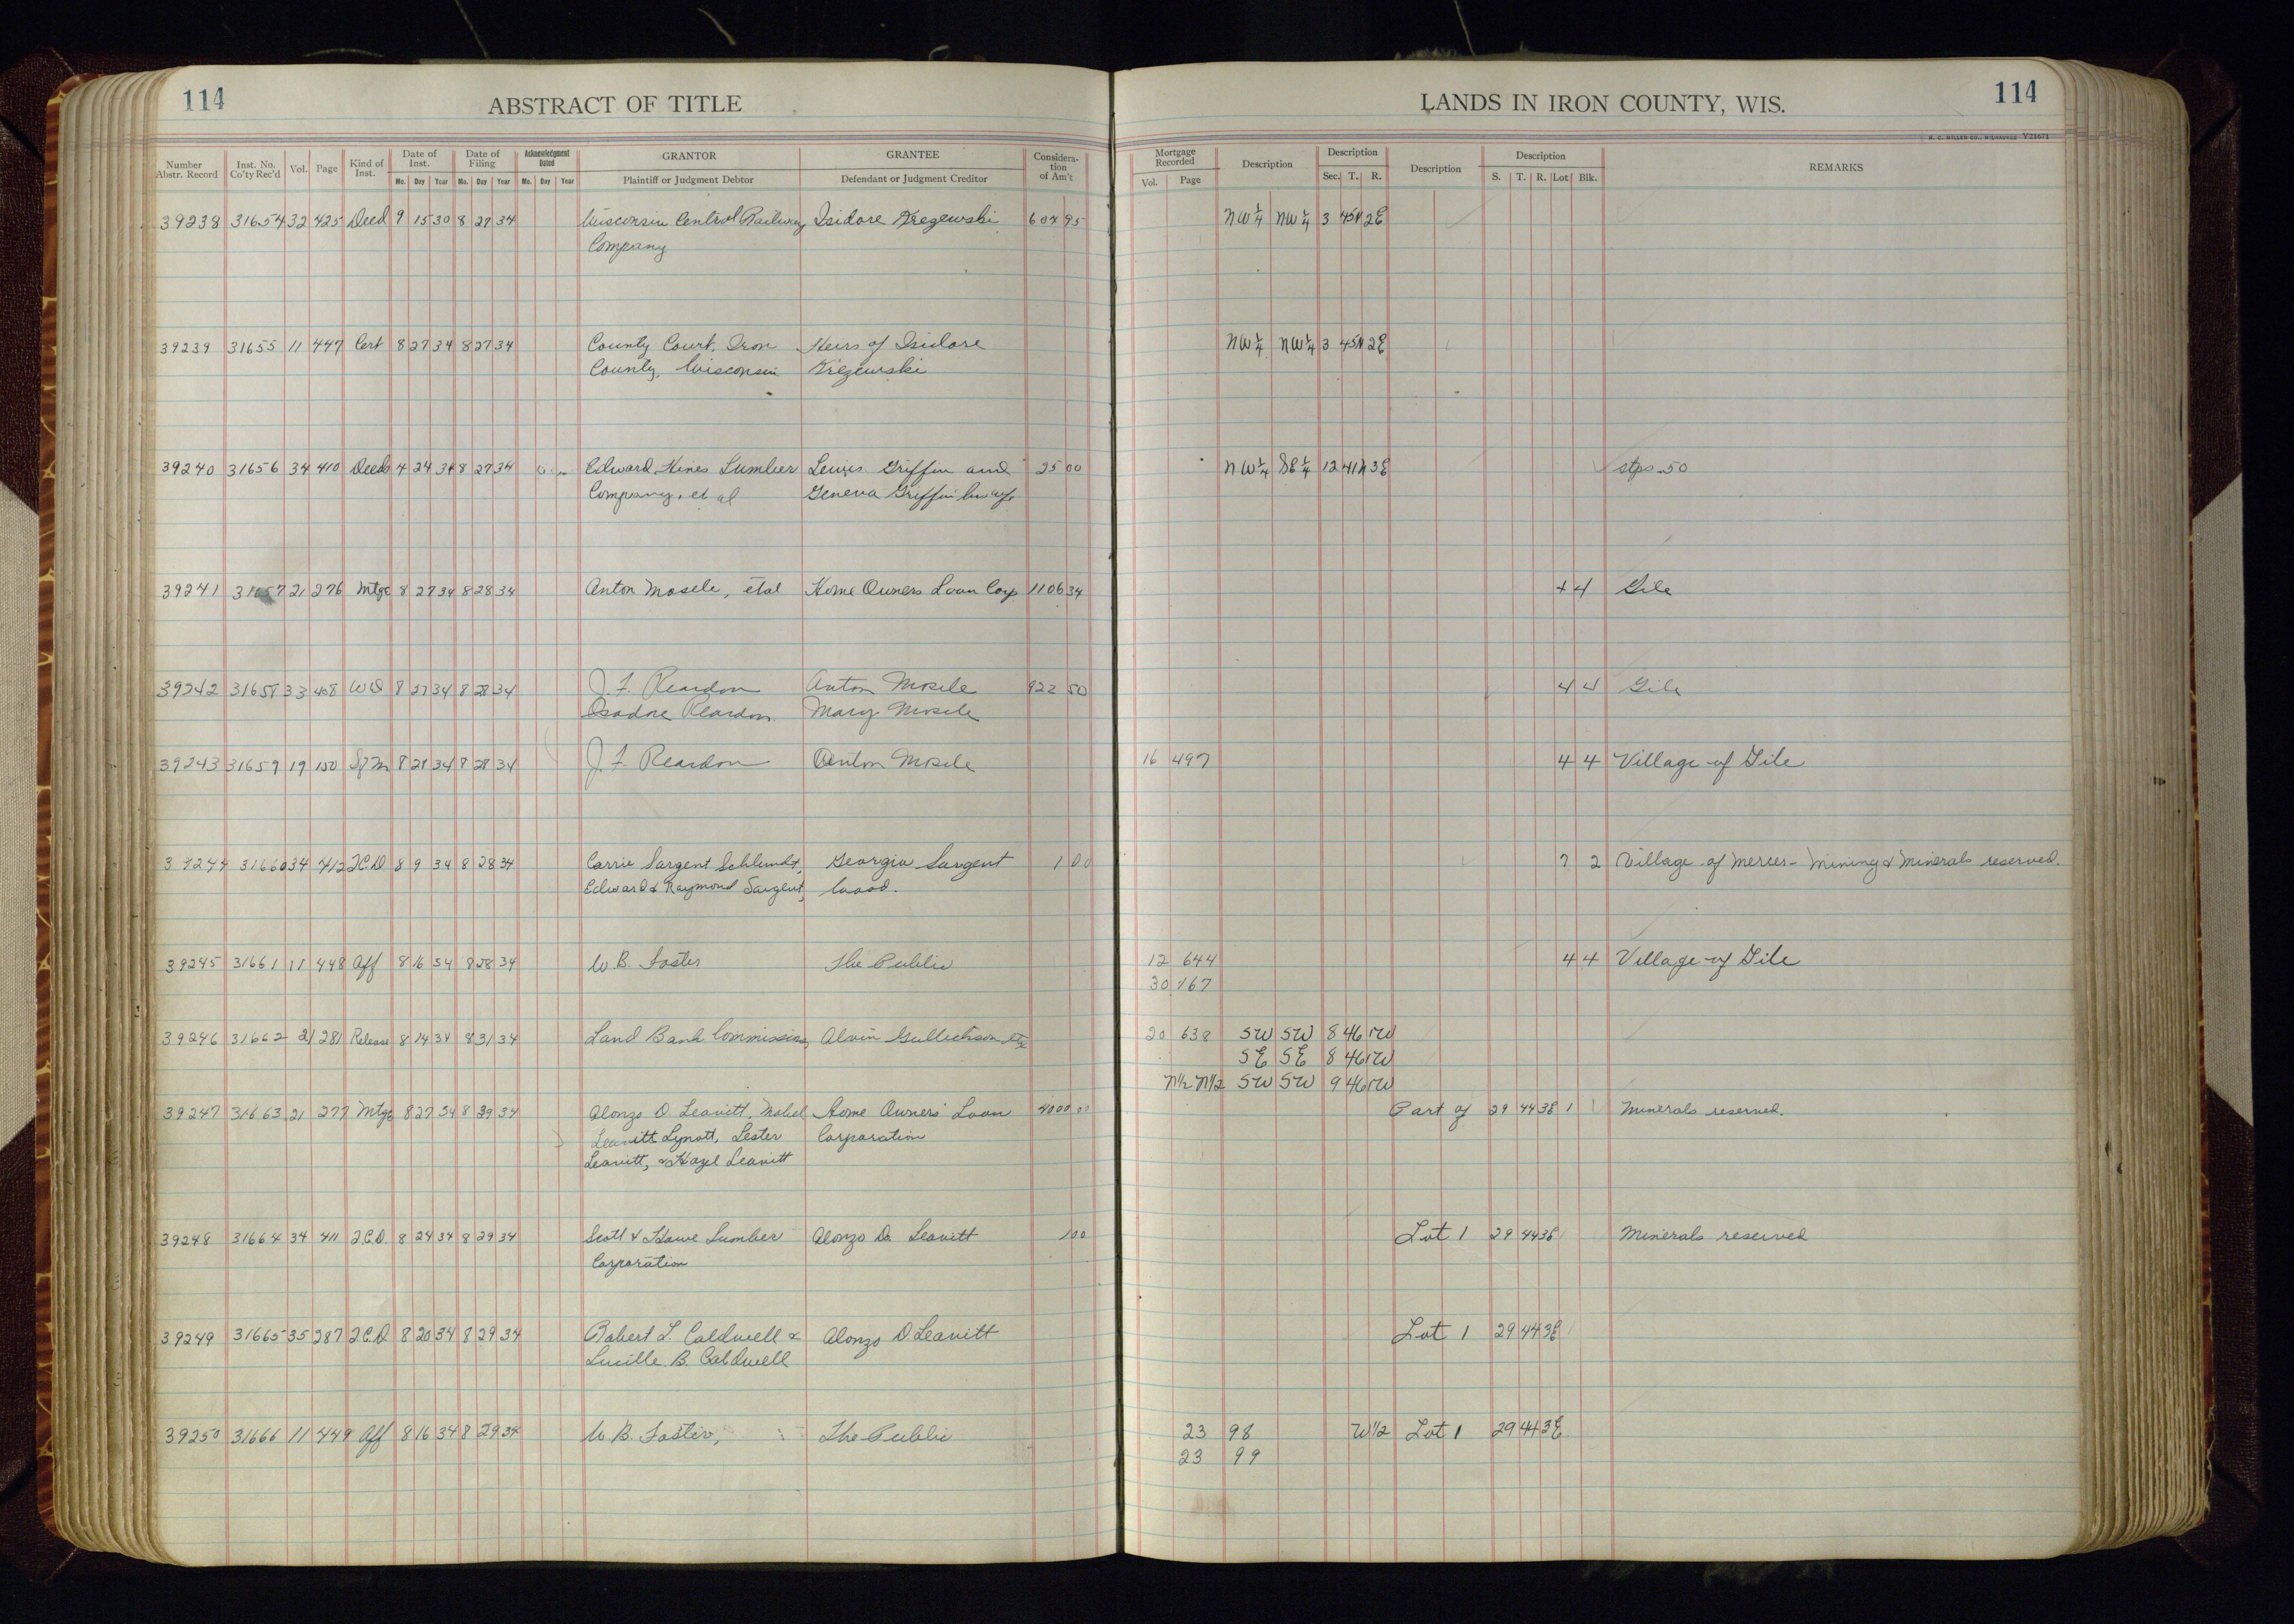 114 ABSTRACT OF TITLE LANDS IN IRON COUNTY, WIS. 114
H. C. MILLER CO., MILWAUKEE V21671
Number Abstr. Record Inst. No. Co'ty Rec'd Vol. Page Kind of Inst. Date of Inst. Mo. Day Year Date of Filing Mo. Day Year Acknowledgment Dated Mo. Day Year GRANTOR Plaintiff or Judgment Debtor GRANTEE Defendant or Judgment Creditor Considera- tion of Am't Mortgage Recorded Vol. Page Description Description Sec. T. R. Description Description S. T. R. Lot Blk. REMARKS
39238 31654 32 425 Deed 9 15 30 8 27 34 Wisconsin Central Railway Isidore Krezewski 604 95 NW¼ NW¼ 3 45N 2E
Company
39239 31655 11 447 Cert 8 27 34 8 27 34 County Court, Iron Heirs of Isidore NW¼ NW¼ 3 45N 2E
County, Wisconsin Krezewski
39240 31656 34 410 Deeds 4 24 34 8 27 34 Edward Hines Lumber Lewis Griffin and 25 00 NW¼ SE¼ 12 41N 3E stps .50
Company, et al Geneva Griffin his wife
39241 31657 21 276 Mtge 8 27 34 8 28 34 Anton Mosele, etal Home Owners Loan Corp 1106 34 4 4 Gile
39242 31658 33 408 WD 8 27 34 8 28 34 J. F. Reardon Anton Mosele 922 50 4 4 Gile
Isadore Reardon Mary Mosele
39243 31659 19 150 Sfm 8 28 34 8 28 34 J. F. Reardon Anton Mosele 16 497 4 4 Village of Gile
39244 31660 34 412 Q.C.D 8 9 34 8 28 34 Carrie Sargent Schlundt, Georgia Sargent 1 00 7 2 Village of Mercer - Mining & Minerals reserved.
Edward & Raymond Sargent, Wood.
39245 31661 11 448 Aff 8 16 34 8 28 34 W B. Foster The Public 12 644 4 4 Village of Gile
30 167
39246 31662 21 281 Release 8 14 34 8 31 34 Land Bank Commissioner Alvin Gullickson 20 638 SW SW 8 46 1W
SE SE 8 46 1W
N½ N½ SW SW 9 46 1W
39247 31663 21 277 Mtge 8 27 34 8 29 34 Alonzo D. Leavitt, Mabel Home Owners' Loan 4000 00 Part of 29 44 3E 1 Minerals reserved.
Leavitt Lynott, Lester Corporation
Leavitt, & Hazel Leavitt
39248 31664 34 411 Q.C.D. 8 24 34 8 29 34 Scott & Howe Lumber Alonzo D. Leavitt 1 00 Lot 1 29 44 3E Minerals reserved
Corporation
39249 31665 35 287 Q.C.D 8 20 34 8 29 34 Robert L. Caldwell & Alonzo D Leavitt Lot 1 29 44 3E
Lucille B. Caldwell
39250 31666 11 449 Aff 8 16 34 8 29 34 W B. Foster, The Public 23 98 W½ Lot 1 29 44 3E
23 99